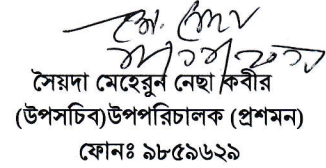 সৈয়দা মেহেরুন নেছা কবীর
(উপসচিব)উপপরিচালক (প্রশমন)
ফোনঃ ৯৮৫৯৬২৯